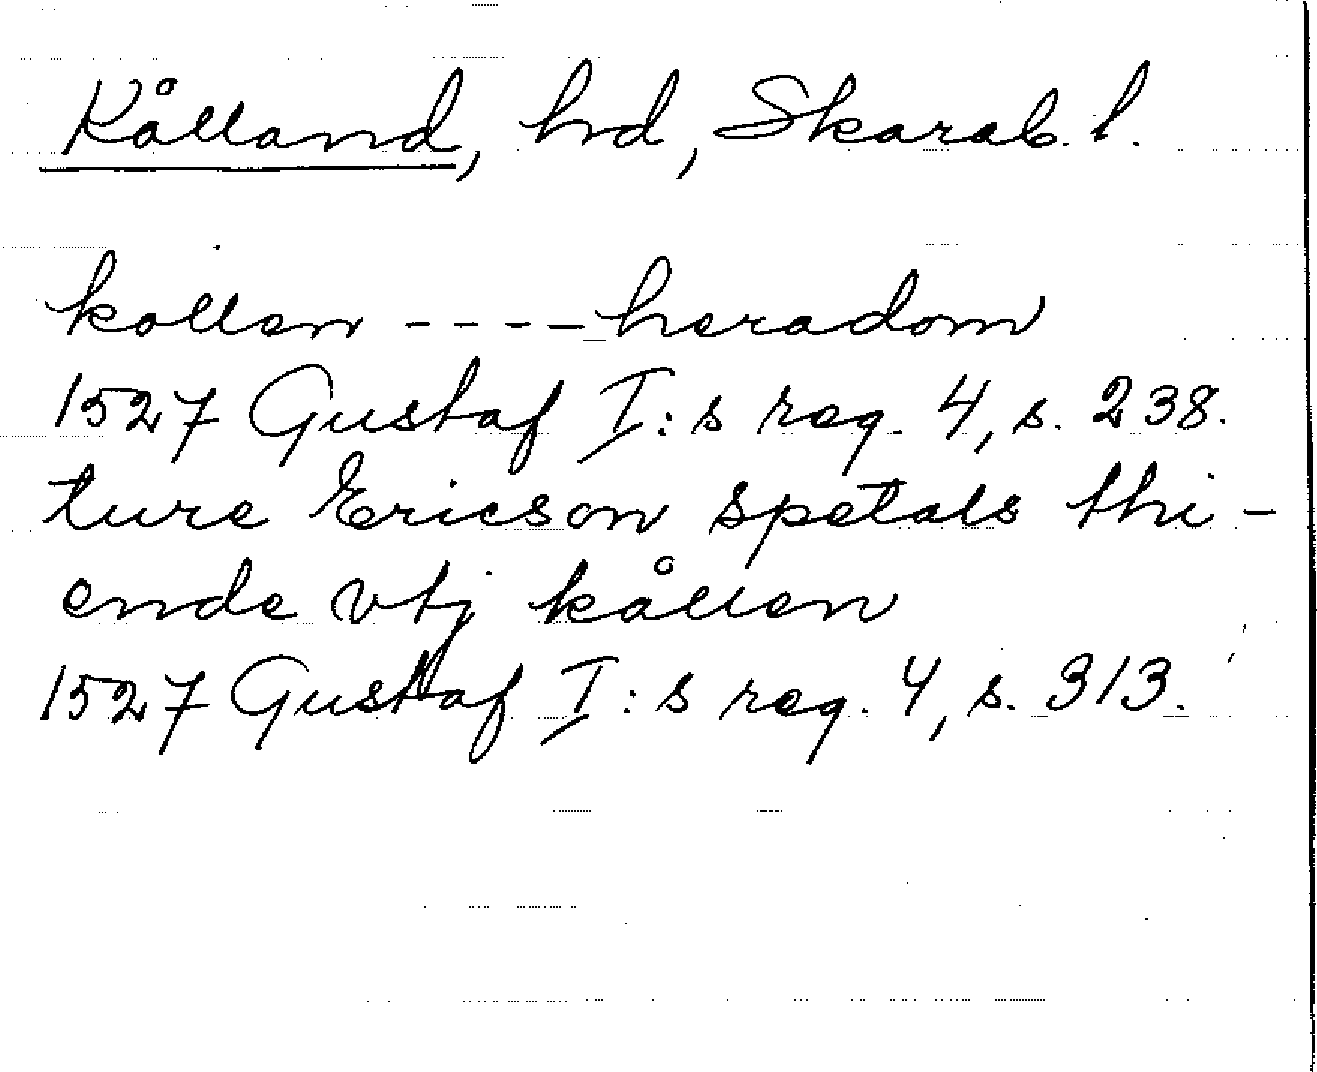 Kålland, hd, Skarab. l.
kollen ---- heradom
1527 Gustaf I:s reg. 4, s. 238.
ture Ericson spetals thi-
ende vtj kållen
1527 Gustaf I:s reg. 4, s. 313.